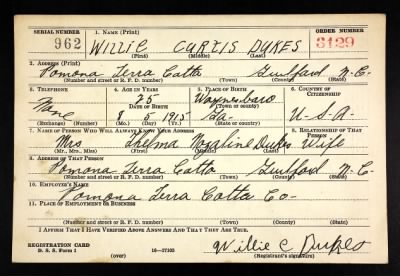 SERIAL NUMBER 1. NAME (Print) ORDER NUMBER
962 WILLIE CURTIS DUKES 3129
(First) (Middle) (Last)
2. ADDRESS (Print)
Pomona Terra Cotta Guilford N.C.
(Number and street or R. F. D. number) (Town) (County) (State)
3. TELEPHONE 4. AGE IN YEARS 5. PLACE OF BIRTH 6. COUNTRY OF CITIZENSHIP
None 25 Waynesboro
DATE OF BIRTH (Town or county)
8 5 1915 Ga. U.S.A.
(Exchange) (Number) (Mo.) (Day) (Yr.) (State or country)
7. NAME OF PERSON WHO WILL ALWAYS KNOW YOUR ADDRESS 8. RELATIONSHIP OF THAT PERSON
Mrs. Thelma Dukes Wife
(Mr., Mrs., Miss) (First) (Middle) (Last)
9. ADDRESS OF THAT PERSON
Pomona Terra Cotta Guilford N.C.
(Number and street or R. F. D. number) (Town) (County) (State)
10. EMPLOYER'S NAME
Pomona Terra Cotta Co.
11. PLACE OF EMPLOYMENT OR BUSINESS
(Number and street or R. F. D. number) (Town) (County) (State)
I AFFIRM THAT I HAVE VERIFIED ABOVE ANSWERS AND THAT THEY ARE TRUE.
REGISTRATION CARD
D. S. S. Form 1 16-17105 Willie C Dukes
(over) (Registrant's signature)